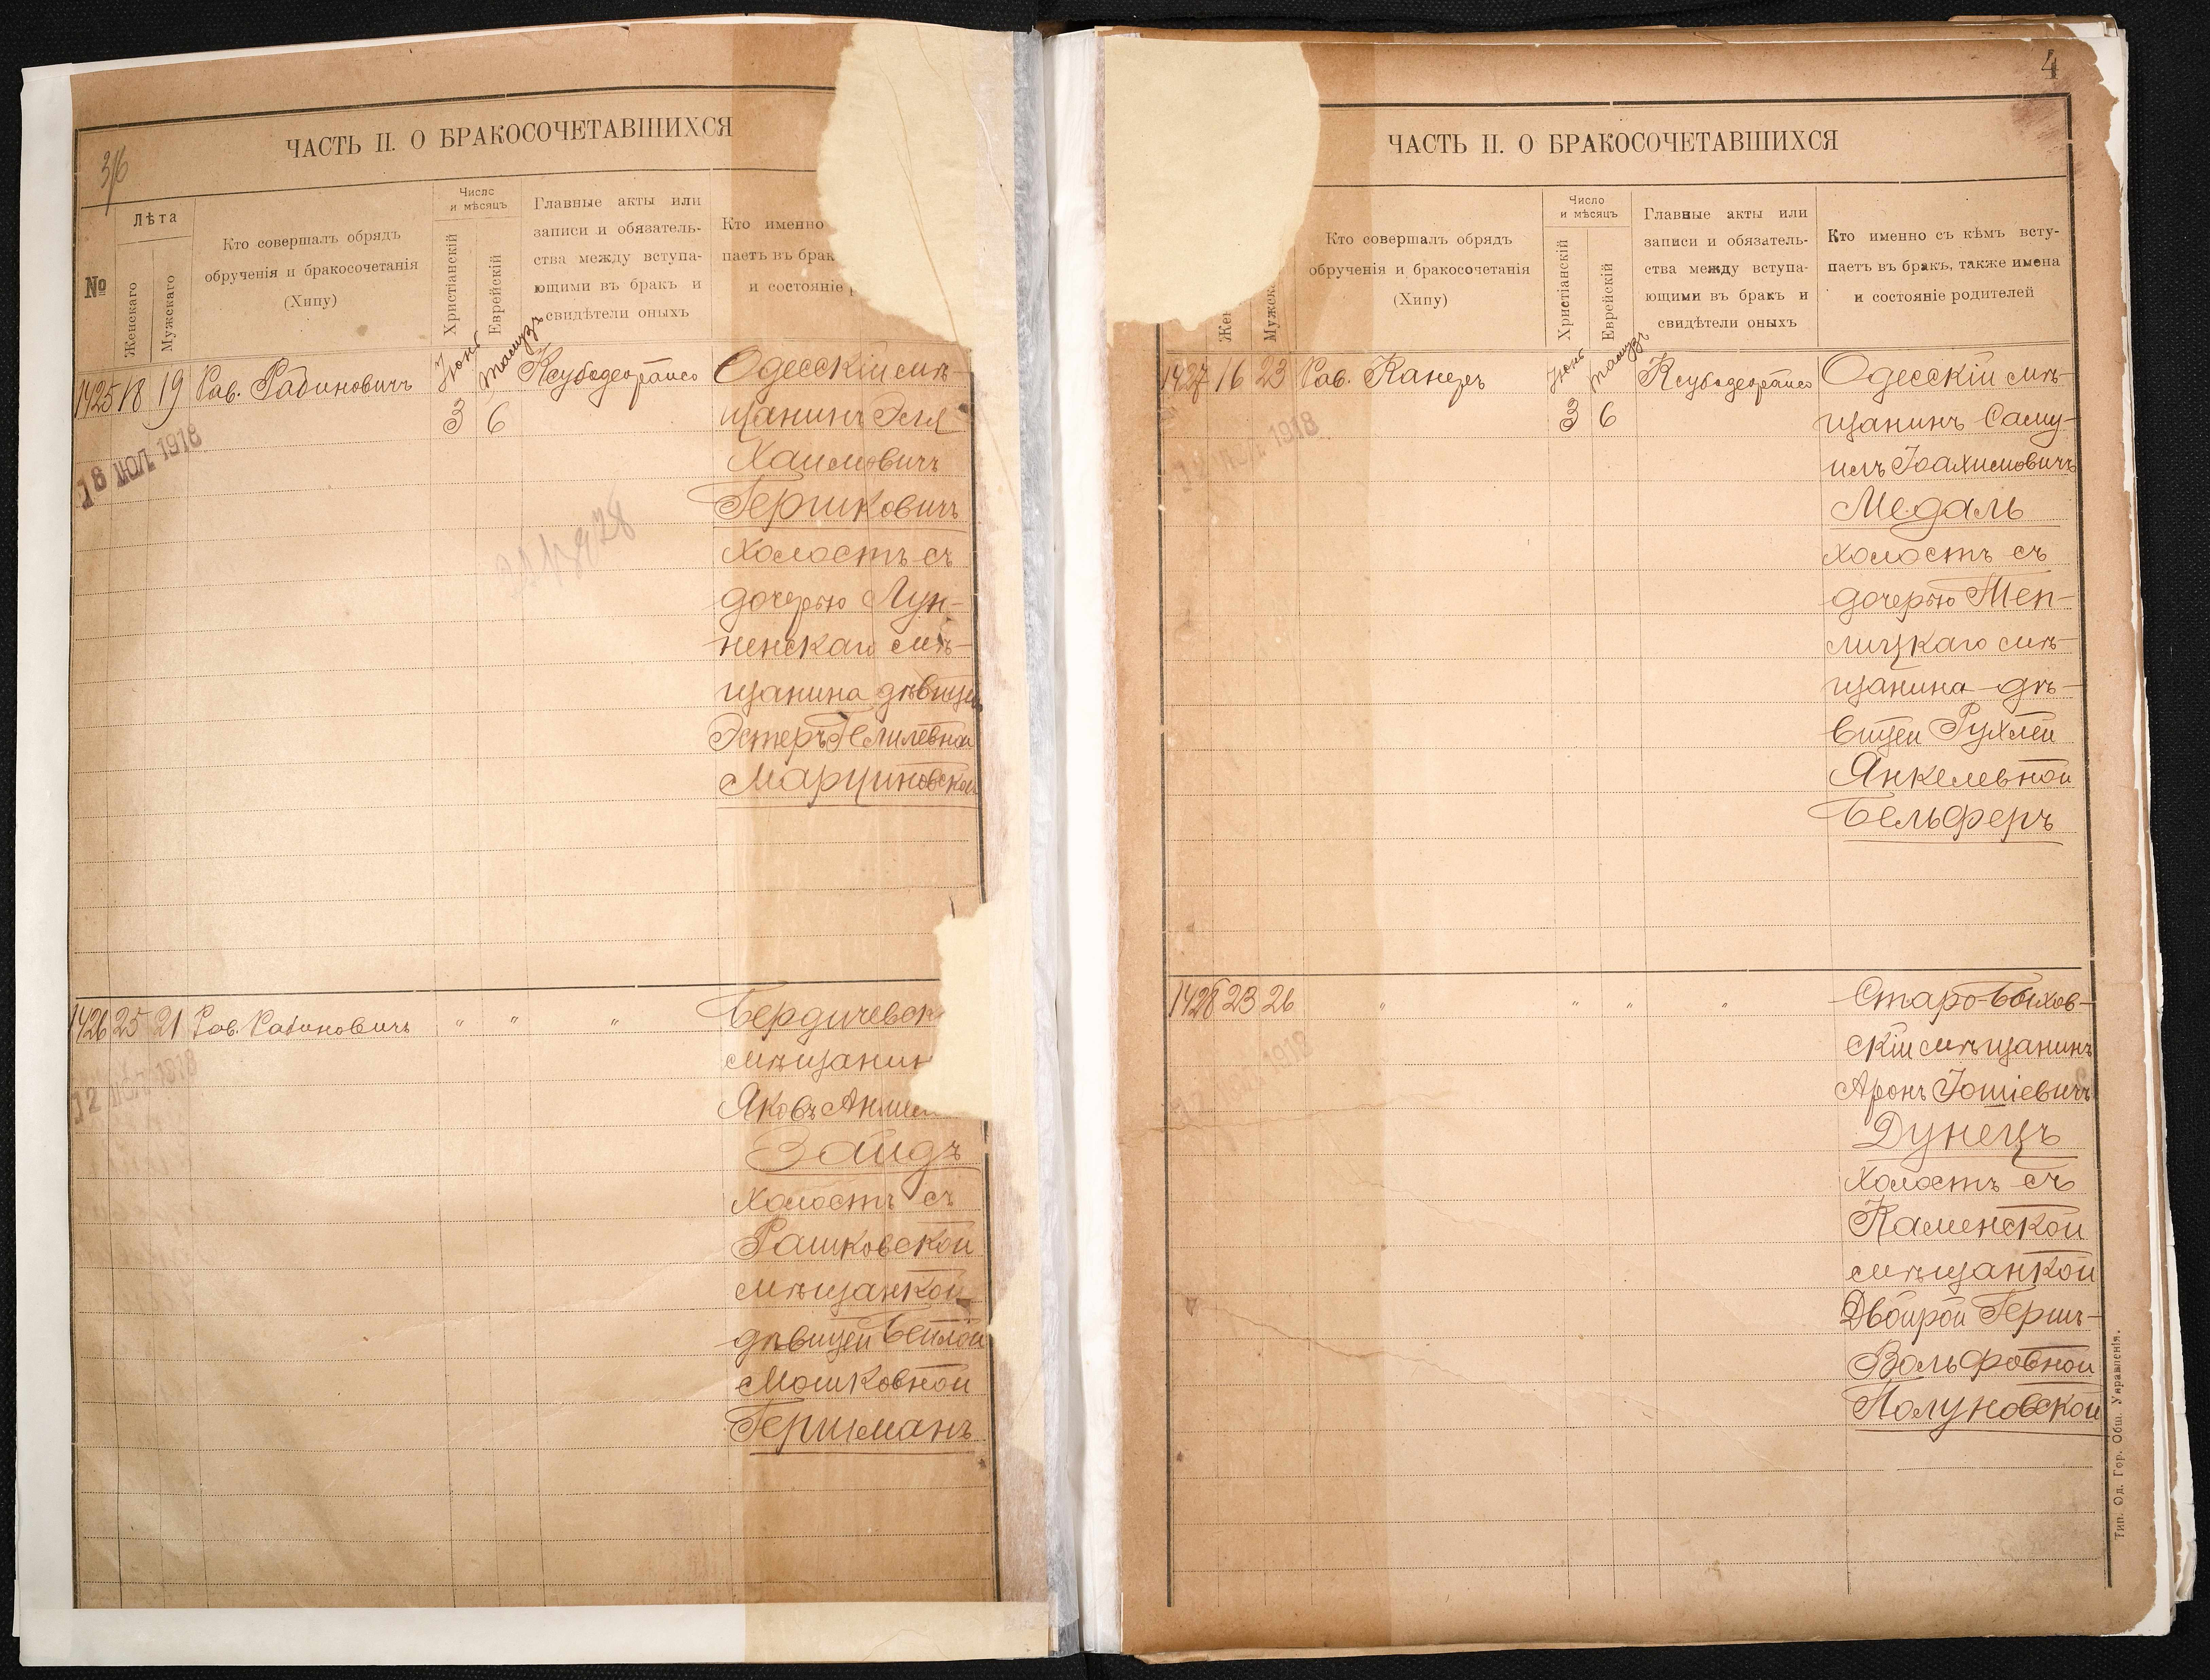 3/6
ЧАСТЬ II. О БРАКОСОЧЕТАВШИХСЯ
№
Лѣта
Женскаго
Мужскаго
Кто совершалъ обрядъ
обрученія и бракосочетанія
(Хипу)
Число
и мѣсяцъ
Христіанскій
Еврейскій
Главные акты или
записи и обязатель-
ства между вступа-
ющими въ бракъ и
свидѣтели оныхъ
Кто именно
паетъ въ брак
и состояніе р
1425 18 19 Рав. Рабиновичъ
Іюнь
Тамузъ
3 6
18 ІЮЛ 1918
Одесскій мѣ-
щанинъ Эля
Хаимовичъ
Гершковичъ
холостъ съ
дочерью Лун-
ненскаго мѣ-
щанина дѣвицей
Эстеръ
Марциновской
1426 25 21 Рав. Рабиновичъ " " "
12 ІЮЛ 1918
Бердичевск
мѣщанин
Яковъ
Зайдъ
холостъ съ
Рашковской
мѣщанкой
дѣвицей Бейлой
Мошковной
Гершманъ
4
ЧАСТЬ II. О БРАКОСОЧЕТАВШИХСЯ
Жен
Мужска
Кто совершалъ обрядъ
обрученія и бракосочетанія
(Хипу)
Число
и мѣсяцъ
Христіанскій
Еврейскій
Главные акты или
записи и обязатель-
ства между вступа-
ющими въ бракъ и
свидѣтели оныхъ
Кто именно съ кѣмъ всту-
паетъ въ бракъ, также имена
и состояніе родителей
1427 16 23 Рав. Канеръ
Іюнь
Тамузъ
3 6
12 ІЮЛ 1918
Одесскій мѣ-
щанинъ Саму-
илъ Іоахимовичъ
Медаль
холостъ съ
дочерью Теп-
лицкаго мѣ-
щанина дѣ-
вицей Рухлей
Янкелевной
Бельферъ
1428 23 26 " " " "
12 ІЮЛ 1918
Старо-Быхов-
скій мѣщанинъ
Аронъ Іошіевичъ
Дунецъ
холостъ съ
Каменской
мѣщанкой
Двойрой Гершъ-
Вольфовной
Полуновской
Тип. Од. Гор. Общ. Управленія.